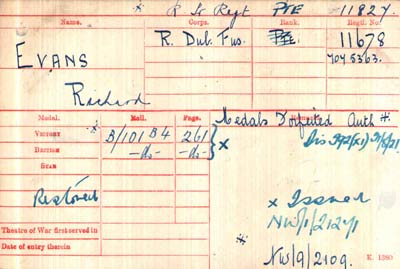 * R Ir Regt PTE 11827.
Name. Corps. Rank. Regtl. No.
EVANS R. Dub. Fus. Pte. 11678
7045363.
Richard
Medals Forfeited Auth *
Medal. Roll. Page.
VICTORY * B/101 B4 261
BRITISH -do- -do- x
STAR
Restored
x Issued
Theatre of War first served in
Date of entry therein
* NW/9/2109.
K. 1380